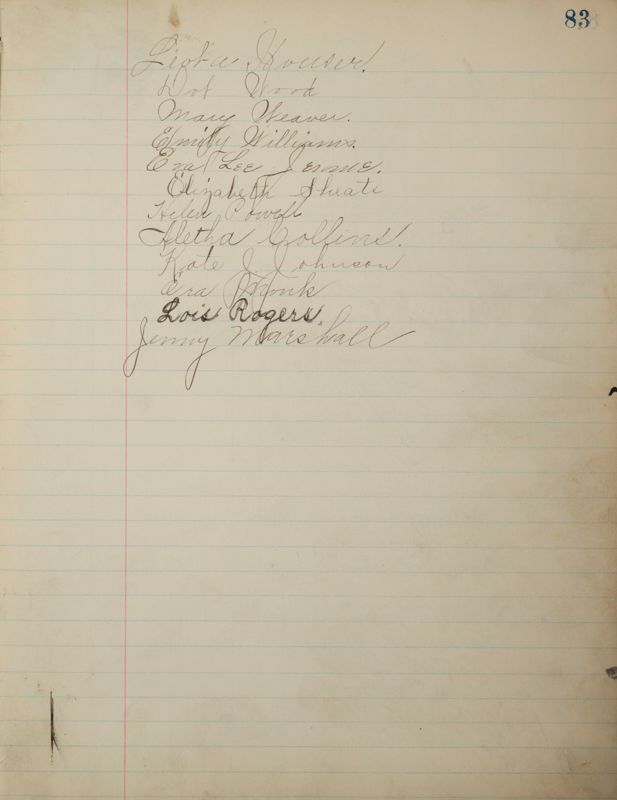 83
Houser.
Dot Wood
Mary Weaver.
Emily Williams.
Eva Lee Jerome.
Elizabeth Sheats
Helen Powell
Aletha Collins.
Kate J. Johnson
Era Monk
Lois Rogers.
Jenny Marshall